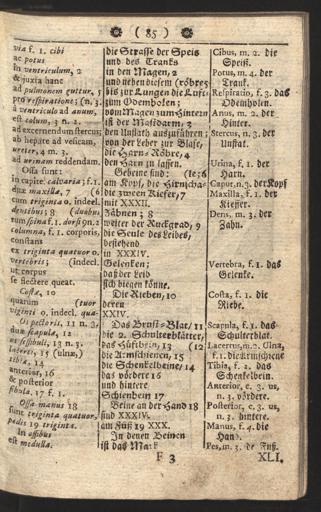 ( 85 )
via f. 1. cibi
ac potus
In ventriculum, 2
& juxta hanc
ad pulmonem guttur, 3
pro respiratione; (n. 3.
à ventriculo ad anum,
est colum, 3 n. 2.
ad excernendum stercus;
ab hepate ad vesicam,
ureter, 4 m. 3.
ad urinam reddendam.
Ossa sunt:
in capite calvaria; f. 1.
duæ maxillæ, 7 (6
cum triginta o. indecl.
dentibus; 8 (duobus
tum spina f. 1. dorsi 9 n. 2.
columna, f. 1. corporis,
constans
ex triginta quatuor o.
vertebris; (indecl.
ut corpus
se flectere queat.
Costæ, 10
quarum (tuor
viginti o. indecl. qua-
Os pectoris, 11 n. 3.
duæ scapulæ, 12
os sessibuli, 13 n. 3.
lacerti, 15 (ulnæ,)
tibiæ,
anterior, 16
& posterior
fibula. 17 f. 1.
Ossa manus 18
sunt triginta quatuor,
pedis 19 triginta.
In ossibus
est medulla.
die Strasse der Speis
und des Tranks
in den Magen, 2
und neben diesem (röhre 3
bis zur Lungen die Luft-
zum Odemholen;
vom Magen zum Hintern
ist der Mastdarm, 3
den Unflath auszuführen;
von der Leber zur Blase,
die Harn-Röhre, 4
den Harn zu lassen.
Gebeine sind: (le; 6
am Kopf, die Hirnscha-
die zween Kiefer, 7
mit XXXII.
Zähnen; 8
weiter der Ruckgrad, 9
die Seule des Leibes,
bestehend
in XXXIV.
Gelenken;
daß der Leib
sich biegen könne.
Die Rieben, 10
deren
XXIV.
Das Brust-Blat/ 11
die 2. Schulterblätter,
das Hüftbein, 13 (12
die Armschienen, 15
die Schenkelbeine, 14
das vördere 16
und hintere
Schienbein 17
Beine an der Hand 18
sind XXXIV.
am Fuß 19 XXX.
In denen Beinen
ist das Mark
Cibus, m. 2. die
Speiß.
Potus, m. 4. der
Trank.
Respiratio, f. 3. das
Odemholen.
Anus, m. 2. der
Hinter.
Stercus, n. 3. der
Unflat.
Urina, f. 1. der
Harn.
Caput, n. 3. der Kopf
Maxilla, f. 1. der
Kiefer.
Dens, m. 3. der
Zahn.
Vertebra, f. 1. das
Gelenke.
Costa, f. 1. die
Riebe.
Scapula, f. 1. das
Schulterblat.
Lacertus, m. 2. Ulna,
f. 1. die Armschiene
Tibia, f. 1. das
Schenkelbein.
Anterior, c. 3. us,
n. 3. vördere.
Posterior, c. 3. us,
n. 3. hintere.
Manus, f. 4. die
Hand.
Pes, m. 3. der Fuß.
F 3
XLI.